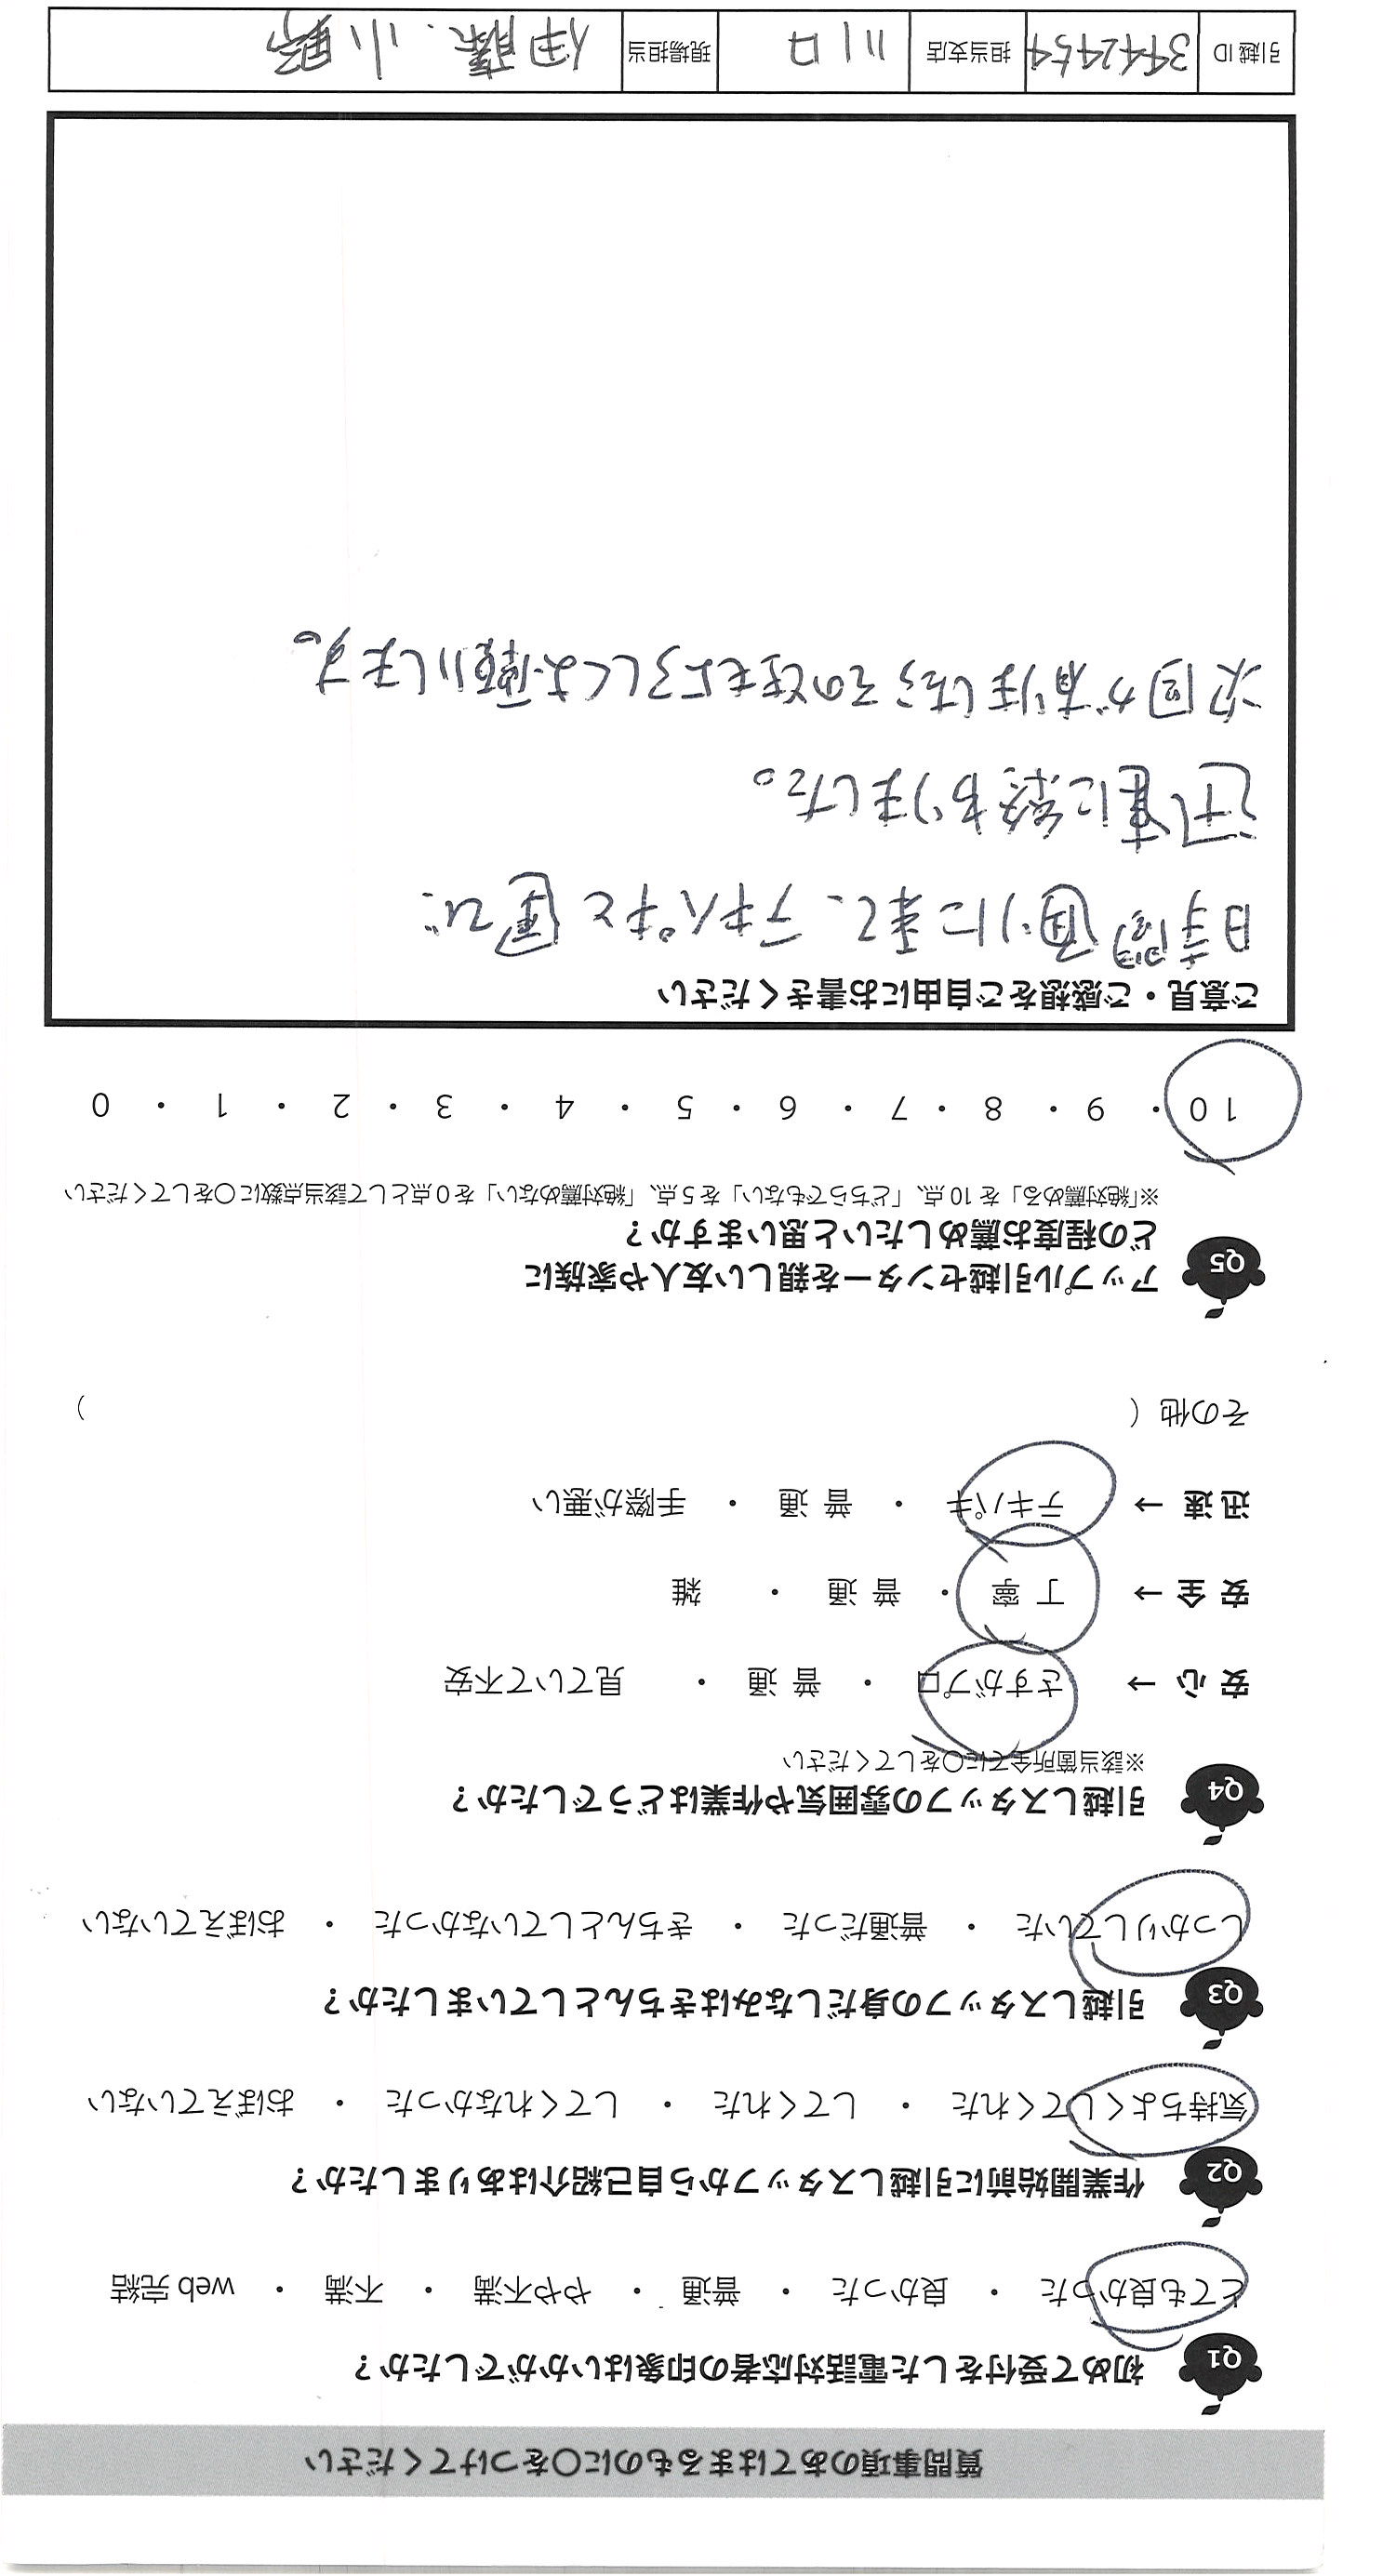 質問事項のあてはまるものに〇をつけてください
Q1 初めて受付をした電話対応者の印象はいかがでしたか？
とても良かった ・ 良かった ・ 普通 ・ やや不満 ・ 不満 ・ web 完結
Q2 作業開始前に引越しスタッフから自己紹介はありましたか？
気持ちよくしてくれた ・ してくれた ・ してくれなかった ・ おぼえていない
Q3 引越しスタッフの身だしなみはきちんとしていましたか？
しっかりしていた ・ 普通だった ・ きちんとしていなかった ・ おぼえていない
Q4 引越しスタッフの雰囲気や作業はどうでしたか？
※該当箇所全てに〇をしてください
安心 → さすがプロ ・ 普通 ・ 見ていて不安
安全 → 丁寧 ・ 普通 ・ 雑
迅速 → テキパキ ・ 普通 ・ 手際が悪い
その他（ ）
Q5 アップル引越センターを親しい友人や家族に
どの程度お薦めしたいと思いますか？
※「絶対薦める」を 10 点、「どちらでもない」を 5 点、「絶対薦めない」を 0 点として該当点数に〇をしてください
10 ・ 9 ・ 8 ・ 7 ・ 6 ・ 5 ・ 4 ・ 3 ・ 2 ・ 1 ・ 0
ご意見・ご感想をご自由にお書きください
時間通りに来て、テキパキと運び、
迅速に終わりました。
次回が有りましたらその時もよろしくお願いします。
引越 ID 3442454 担当支店 川口 現場担当 伊藤、小野